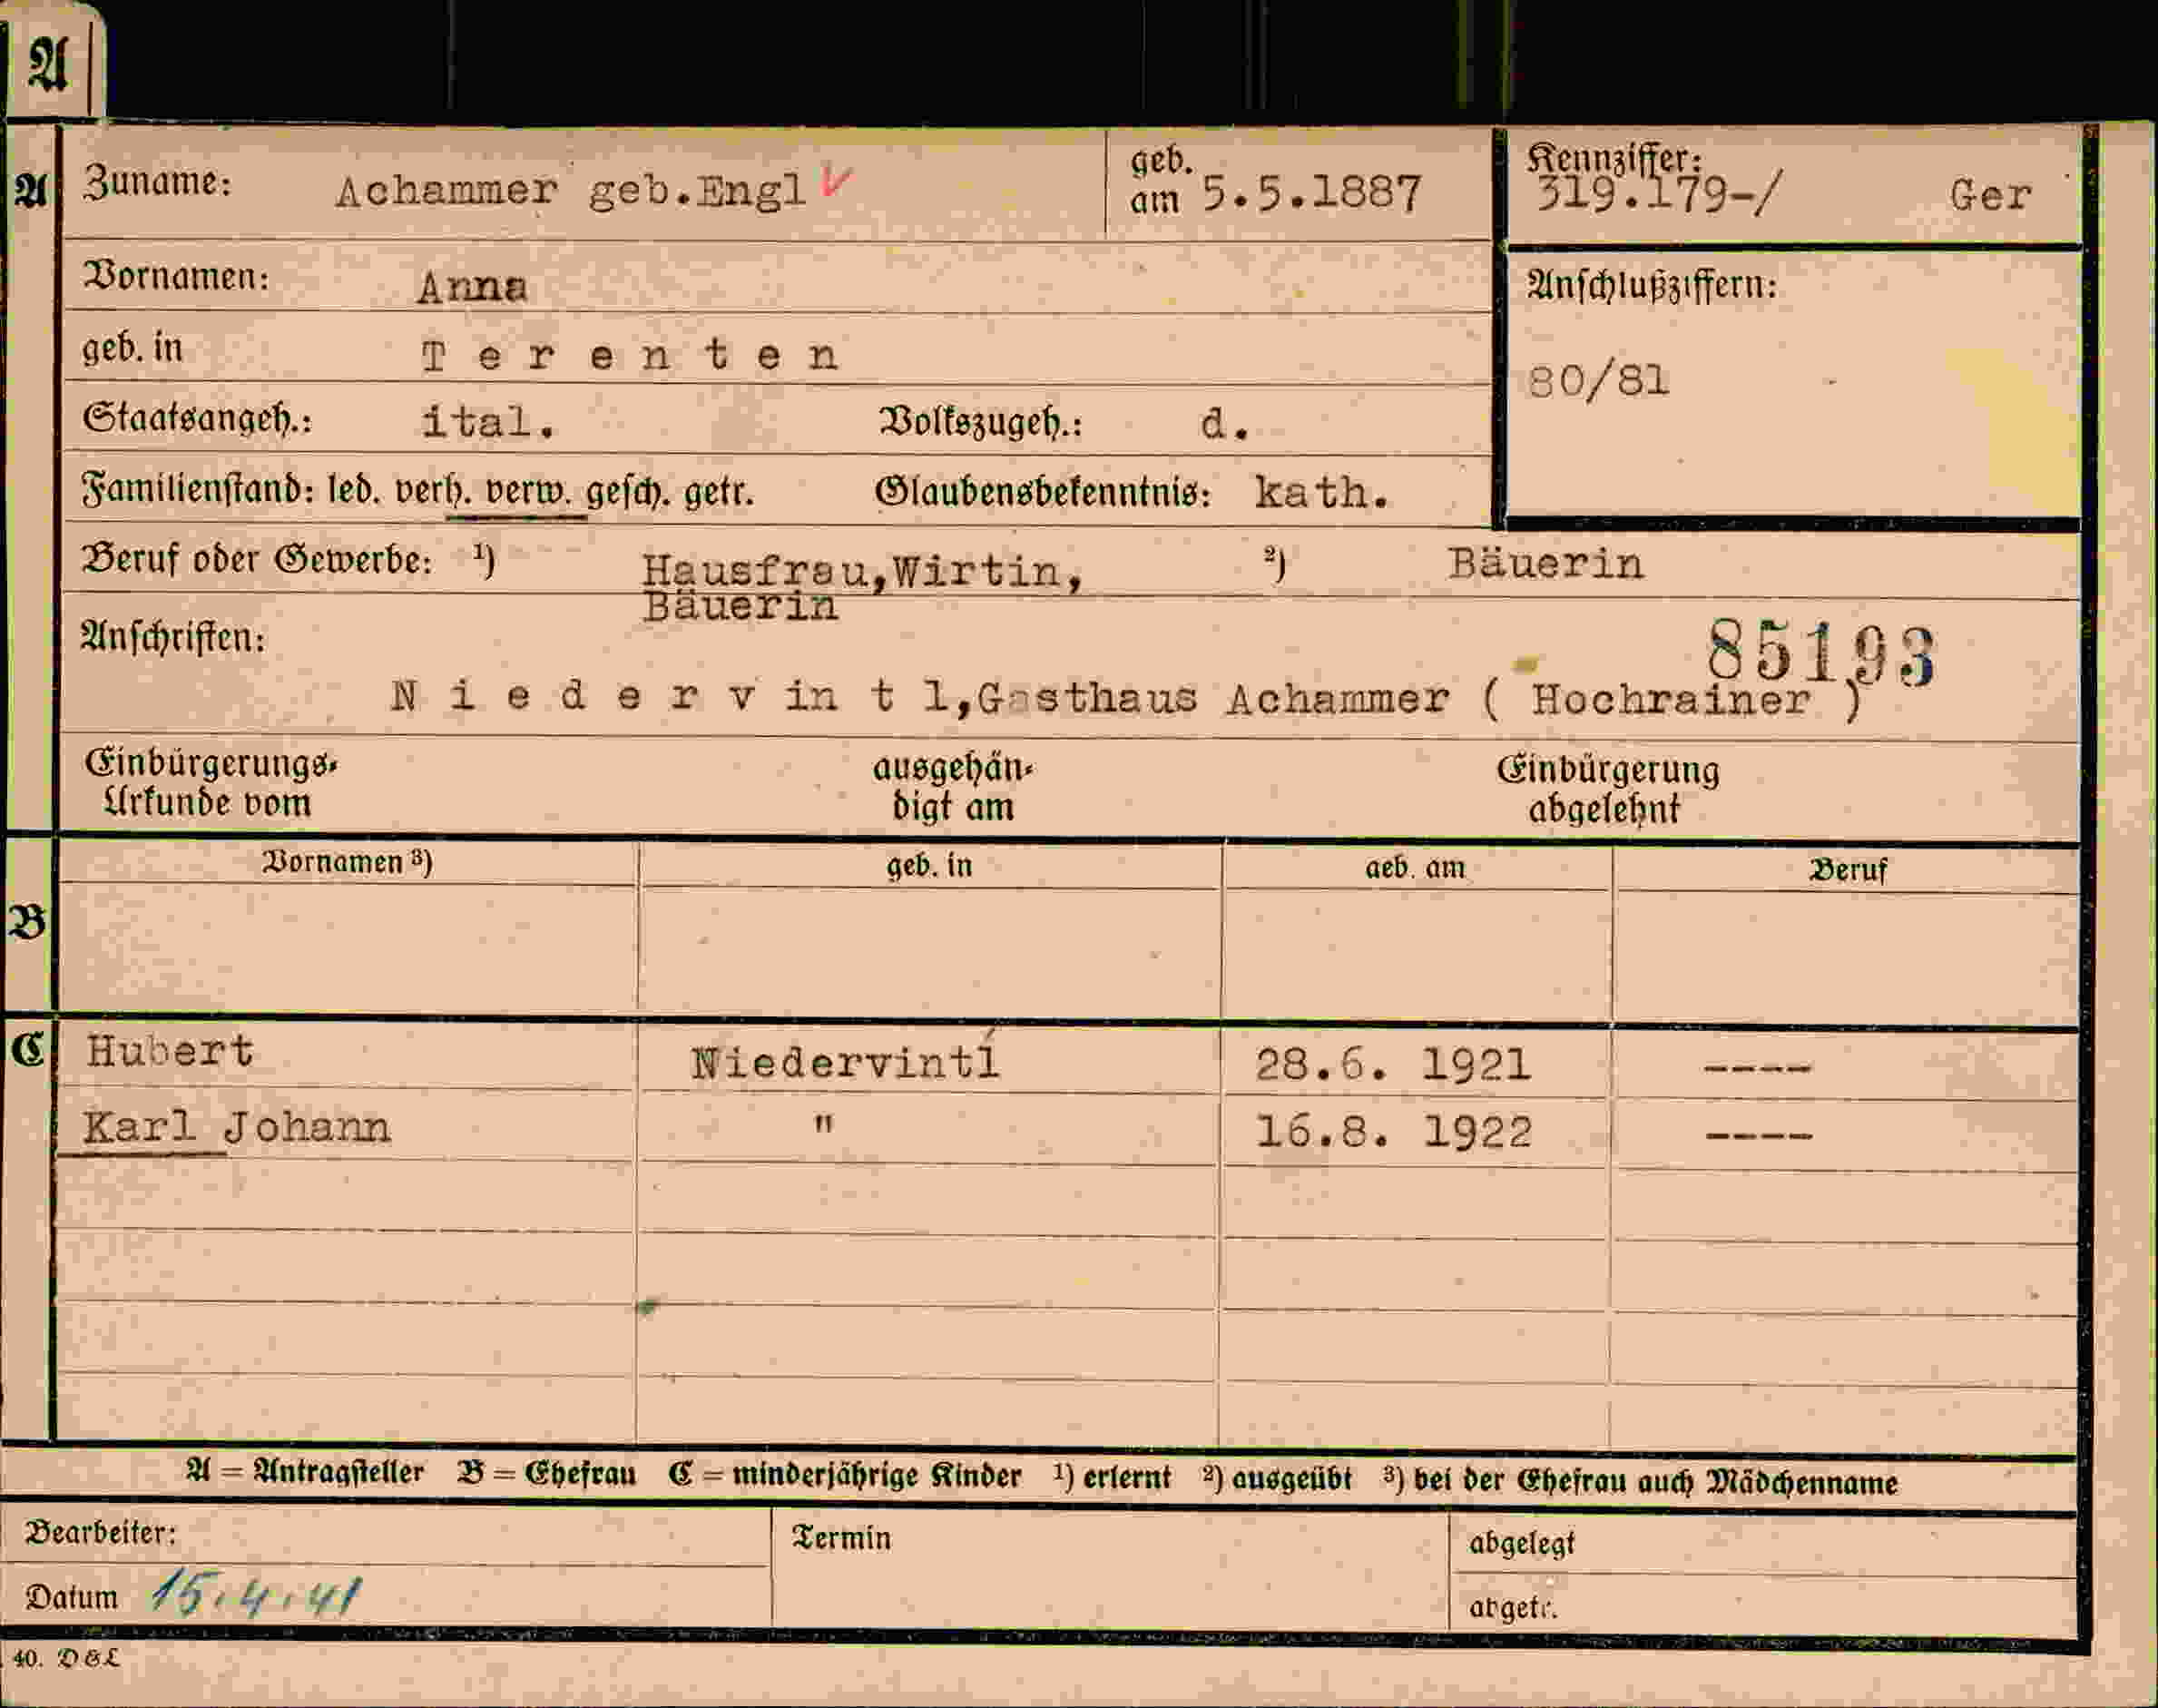 A
A Zuname: Achammer geb.Engl V geb. am 5.5.1887 Kennziffer: 319.179-/ Ger
Vornamen: Anna
Anschlußziffern:
geb. in Terenten
80/81
Staatsangeh.: ital. Volkszugeh.: d.
Familienstand: led. verh. verw. gesch. getr. Glaubensbekenntnis: kath.
Beruf oder Gewerbe: 1) Hausfrau,Wirtin, 2) Bäuerin
Bäuerin
Anschriften: 85193
Niedervintl,Gasthaus Achammer ( Hochrainer )
Einbürgerungs- ausgehän- Einbürgerung
Urkunde vom digt am abgelehnt
Vornamen 3) geb. in geb. am Beruf
B
C Hubert Niedervintl 28.6. 1921 ----
Karl Johann " 16.8. 1922 ----
A = Antragsteller B = Ehefrau C = minderjährige Kinder 1) erlernt 2) ausgeübt 3) bei der Ehefrau auch Mädchenname
Bearbeiter: Termin abgelegt
Datum 15.4.41 abgetr.
40. D&L